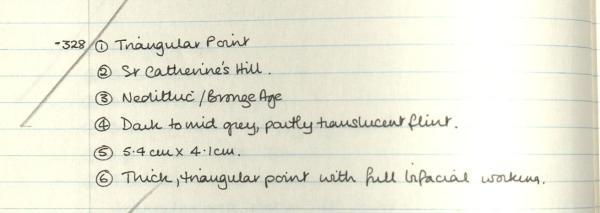 -328 ① Triangular Point
② St Catherine's Hill.
③ Neolithic / Bronze Age
④ Dark to mid grey, partly translucent flint.
⑤ 5.4 cm x 4.1cm.
⑥ Thick, triangular point with full bifacial working.